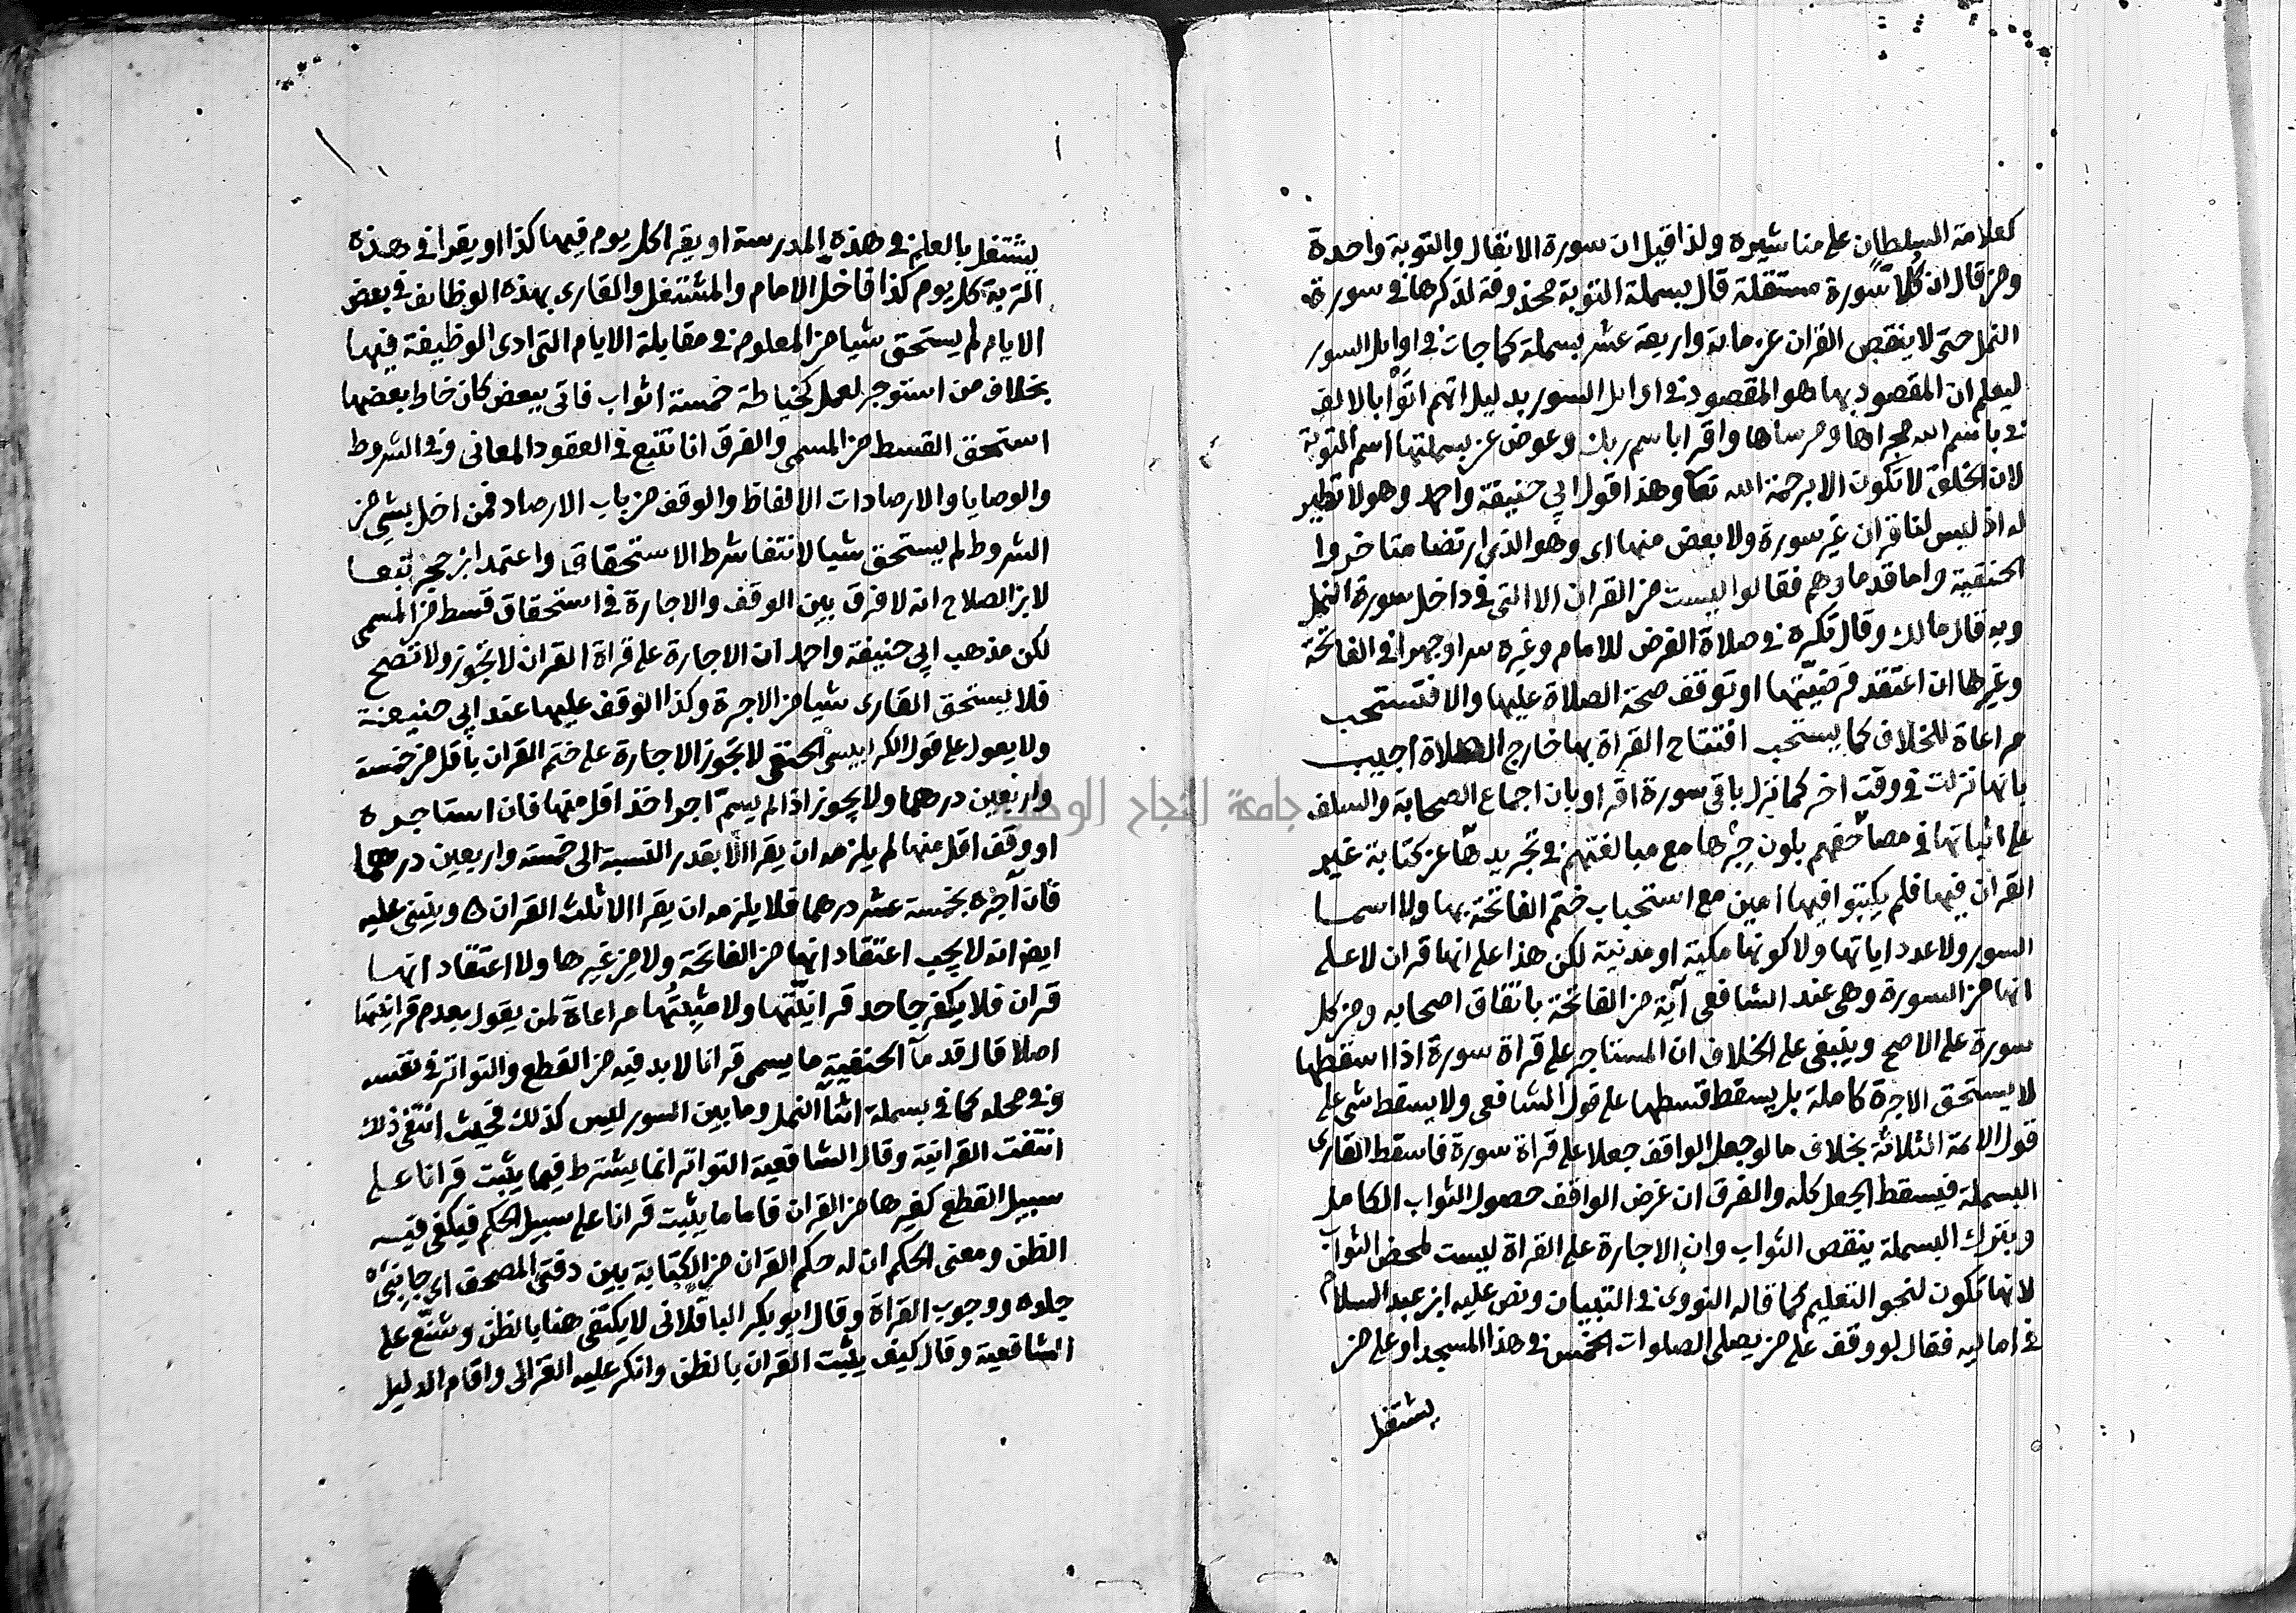 كعلامة السلطان على مناشيره ولذا قيل ان سورة الانفال والتوبة واحدة
ومن قال ان كلا سورة مستقلة قال بسملة التوبة محذوفة لذكرها في سورة
النمل حتى لا ينقص القران عن ماية واربعة عشر بسملة كما جات في اوايل السور
ليعلم ان المقصود بها هو المقصود في اوايل السور بدليل انهم اتوا بالالف
في باسم الله مجراها ومرساها واقرا باسم ربك وعوض عن بسملتها اسم التوبة
لان الخلق لا تكون الا برحمة الله تعا وهذا قول ابي حنيفة واحمد وهو لا تطير
له اذ ليس لنا قران غير سورة ولا بعض منها اى وهو الذي ارتضا متاخروا
الحنفية واما قدماوهم فقالوا ليست من القران الا التي في داخل سورة النمل
وبه قال مالك وقال تكره في صلاة الفرض للامام وغيره سرا وجهرا في الفاتحة
وغيرها ان اعتقد فرضيتها او توقف صحة الصلاة عليها والا فتستحب
مراعاة للخلاف كما يستحب افتتاح القراة بها خارج الصلاة اجيب
بانها نزلت في وقت اخر كما نزل باقي سورة اقرا وبان اجماع الصحابة والسلف
على اثباتها في مصاحفهم بلون حبرها مع مبالغتهم في تجريدها عن كتابة غير
القران فيها فلم يكتبوا فيها امين مع استحباب ختم الفاتحة بها ولا اسما
السور ولا عدد اياتها ولا كونها مكية او مدنية لكن هذا على انها قران لا على
انها من السورة وهي عند الشافعى آية من الفاتحة باتفاق اصحابه ومن كل
سورة على الاصح وينبغى على الخلاف ان المستاجر على قراة سورة اذا اسقطها
لا يستحق الاجرة كاملة بل يسقط قسطها على قول الشافعى ولا يسقط شى على
قول الايمة الثلاثة بخلاف ما لو جعل الواقف جعلا على قراة سورة فاسقط القارى
البسملة فيسقط الجعل كله والفرق ان غرض الواقف حصول الثواب الكامل
وبترك البسملة ينقص الثواب وان الاجارة على القراة ليست لمحض الثواب
لانها تكون لنحو التعليم كما قاله النووى في التبيان ونص عليه ابن عبد السلام
في اماليه فقال لو وقف على من يصلى الصلوات الخمس في هذا المسجد او على من
يشتغل
يشتغل بالعلم في هذه المدرسة او يقرا كل يوم فيها كذا او يقرا في هذه
التربة كل يوم كذا فاخل الامام والمشتغل والقارى بهذه الوظايف في بعض
الايام لم يستحق شيا من المعلوم في مقابلة الايام التي ادى الوظيفة فيها
بخلاف من استوجر لعمل كخياطة خمسة اثواب فاتى ببعض كان خاط بعضها
استحق القسط من المسمى والفرق انا نتبع في العقود المعانى وفي الشروط
والوصايا والارصادات الالفاظ والوقف من باب الارصاد فمن اخل بشى من
الشروط لم يستحق شيا لانتفا شرط الاستحقاق واعتمد ابن حجر تبعا
لابن الصلاح انه لا فرق بين الوقف والاجارة في استحقاق قسط من المسمى
لكن مذهب ابي حنيفة واحمد ان الاجارة على قراة القران لا تجوز ولا تصح
فلا يستحق القارى شيا من الاجرة وكذا الوقف عليها عند ابي حنيفة
ولا يعول على قول الكرابيسى الحنفى لا تجوز الاجارة على ختم القران باقل من خمسة
واربعين درهما ولا يجوز اذا لم يسم اجرا اخذ اقل منها فان استاجره
او وقف اقل منها لم يلزمه ان يقرا الا بقدر النسبة الى خمسة واربعين درهما
فان آجره بخمسة عشر درهما فلا يلزمه ان يقرا الا ثلث القران وينبنى عليه
ايضا انه لا يجب اعتقاد انها من الفاتحة ولا من غيرها ولا اعتقاد انها
قران فلا يكفر جاحد قرانيتها ولا مثبتها مراعاة لمن يقول بعدم قرانيتها
اصلا قال قدمآ الحنفية ما يسمى قرانا لا بد فيه من القطع والتواتر في نفسه
وفي محله كما في بسملة اثنا النمل وما بين السور ليس كذلك فحيث انتفى ذلك
انتفت القرانية وقال الشافعية التواتر انما يشترط فيما يثبت قرانا على
سبيل القطع كغيرها من القران فاما ما يثبت قرانا على سبيل الحكم فيكفى فيه
الظن ومعنى الحكم ان له حكم القران من الكتابة بين دفتى المصحف اى جانبى
جلده ووجوب القراة وقال ابو بكر الباقلانى لا يكتفى هنا بالظن وشنع على
الشافعية وقال كيف يثبت القران بالظن وانكر عليه الغزالى واقام الدليل
جامعة النجاح الوطنية